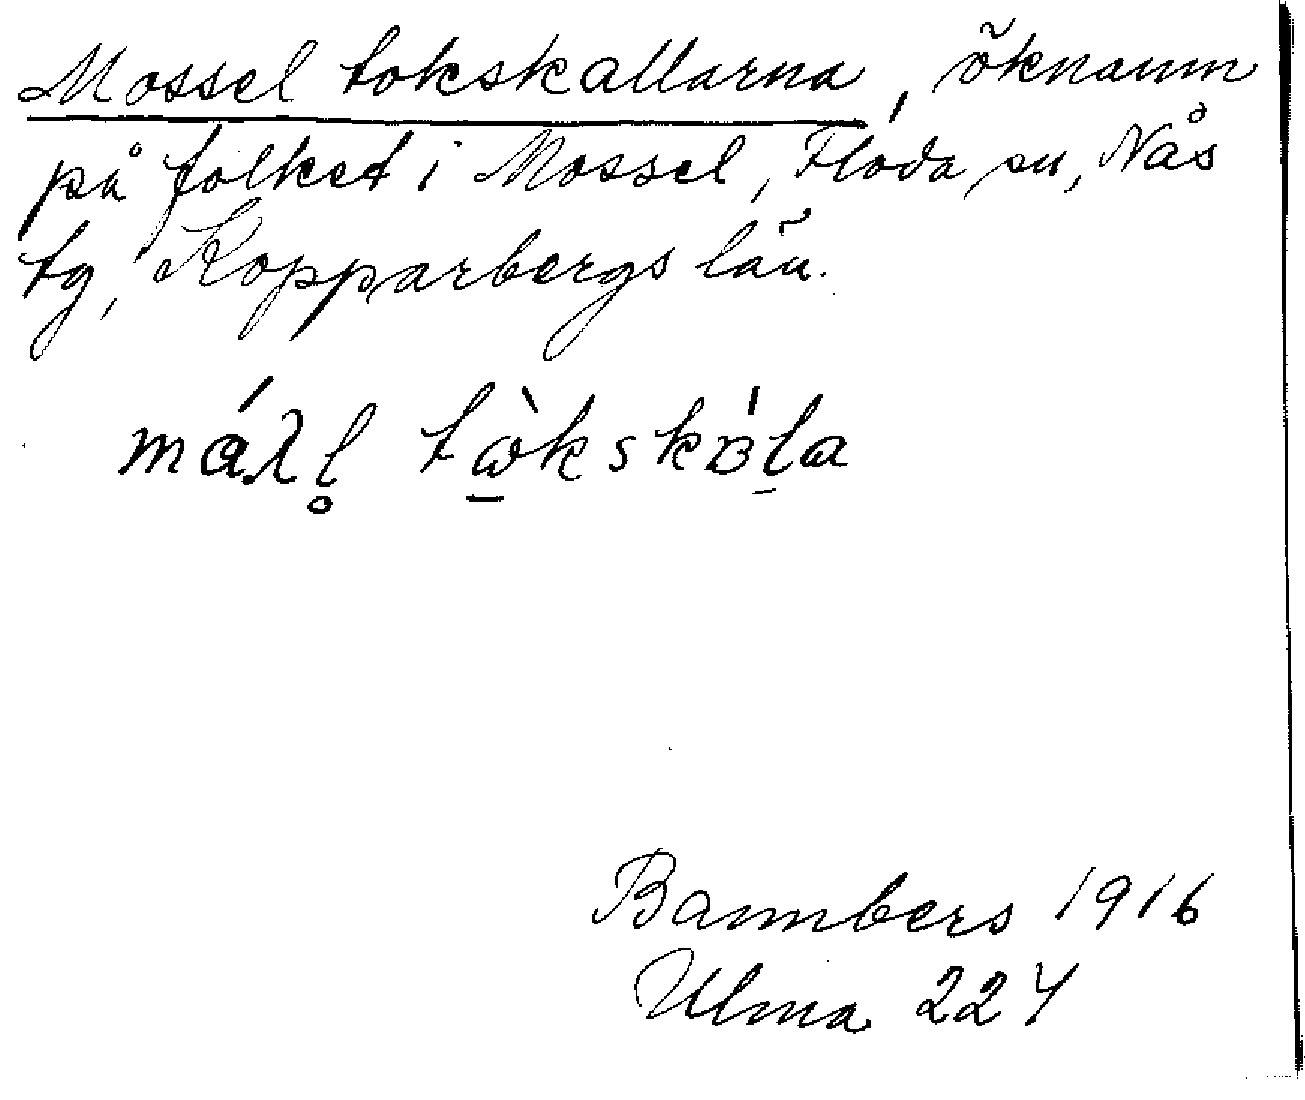 Mossel tokskallarna, öknamn
på folket i Mossel, Floda sn, Nås
tg, Kopparbergs län.
máɿl̥ tὼ̠kskʙ̍l̠a
Bannbers 1916
Ulma 224